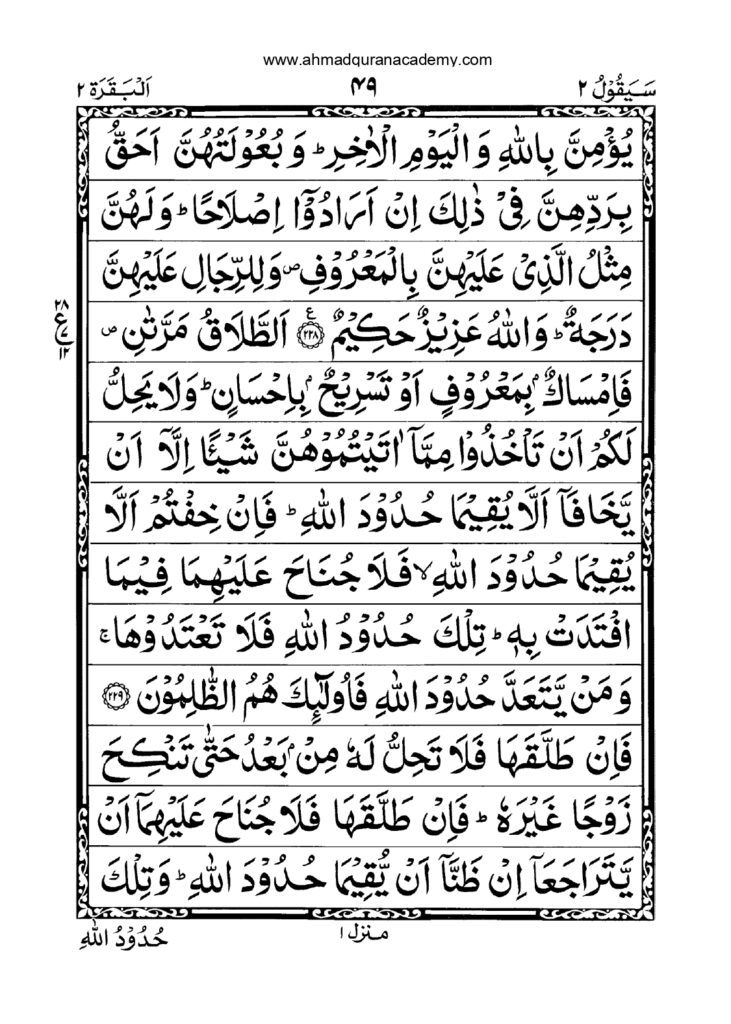 www.ahmadquranacademy.com
سَيَقُوْلُ ٢ ۴۹ اَلْبَقَرَة ٢
يُؤْمِنَّ بِاللّٰهِ وَ الْيَوْمِ الْاٰخِرِ ؕ وَ بُعُوْلَتُهُنَّ اَحَقُّ
بِرَدِّهِنَّ فِيْ ذٰلِكَ اِنْ اَرَادُوْۤا اِصْلَاحًا ؕ وَ لَهُنَّ
مِثْلُ الَّذِيْ عَلَيْهِنَّ بِالْمَعْرُوْفِ ۪ وَ لِلرِّجَالِ عَلَيْهِنَّ
دَرَجَةٌ ؕ وَ اللّٰهُ عَزِيْزٌ حَكِيْمٌ ﴿۲۲۸﴾ ع اَلطَّلَاقُ مَرَّتٰنِ ۪
۲۸ ع ۷ ۱۲
فَاِمْسَاكٌۢ بِمَعْرُوْفٍ اَوْ تَسْرِيْحٌۢ بِاِحْسَانٍ ؕ وَ لَا يَحِلُّ
لَكُمْ اَنْ تَاْخُذُوْا مِمَّاۤ اٰتَيْتُمُوْهُنَّ شَيْـًٔا اِلَّاۤ اَنْ
يَّخَافَاۤ اَلَّا يُقِيْمَا حُدُوْدَ اللّٰهِ ؕ فَاِنْ خِفْتُمْ اَلَّا
يُقِيْمَا حُدُوْدَ اللّٰهِ ۙ فَلَا جُنَاحَ عَلَيْهِمَا فِيْمَا
افْتَدَتْ بِهٖ ؕ تِلْكَ حُدُوْدُ اللّٰهِ فَلَا تَعْتَدُوْهَا ۚ
وَ مَنْ يَّتَعَدَّ حُدُوْدَ اللّٰهِ فَاُولٰٓئِكَ هُمُ الظّٰلِمُوْنَ ﴿۲۲۹﴾
فَاِنْ طَلَّقَهَا فَلَا تَحِلُّ لَهٗ مِنْۢ بَعْدُ حَتّٰى تَنْكِحَ
زَوْجًا غَيْرَهٗ ؕ فَاِنْ طَلَّقَهَا فَلَا جُنَاحَ عَلَيْهِمَاۤ اَنْ
يَّتَرَاجَعَاۤ اِنْ ظَنَّاۤ اَنْ يُّقِيْمَا حُدُوْدَ اللّٰهِ ؕ وَ تِلْكَ
منزل ۱ حُدُوْدُ اللّٰهِ